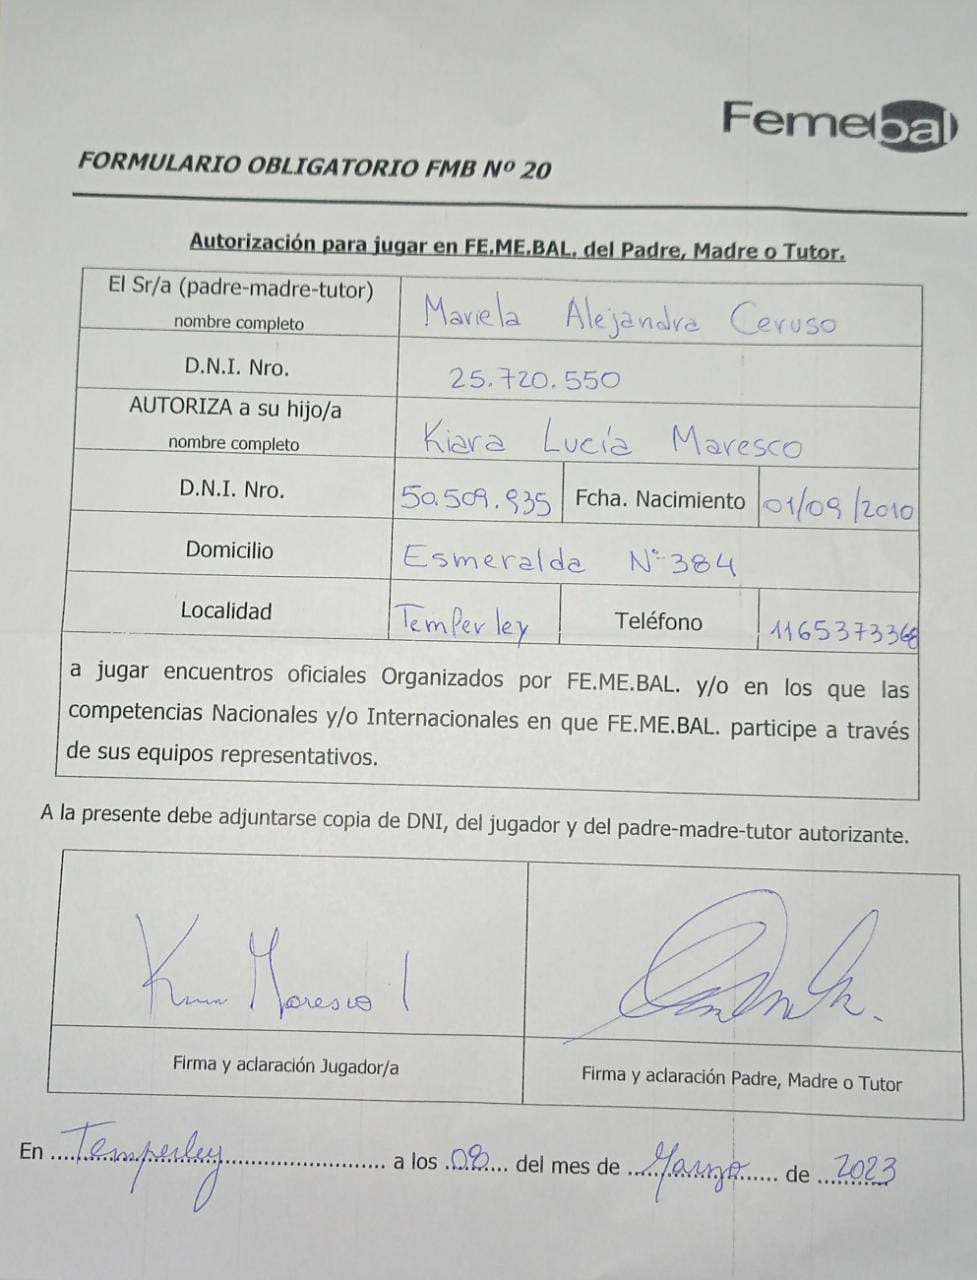 Femebal
FORMULARIO OBLIGATORIO FMB Nº 20
Autorización para jugar en FE.ME.BAL. del Padre, Madre o Tutor.
El Sr/a (padre-madre-tutor) nombre completo Mariela Alejandra Ceruso
D.N.I. Nro. 25.720.550
AUTORIZA a su hijo/a nombre completo Kiara Lucía Maresco
D.N.I. Nro. 50.509.935 Fcha. Nacimiento 01/09/2010
Domicilio Esmeralda Nº 384
Localidad Temperley Teléfono 1165373368
a jugar encuentros oficiales Organizados por FE.ME.BAL. y/o en los que las
competencias Nacionales y/o Internacionales en que FE.ME.BAL. participe a través
de sus equipos representativos.
A la presente debe adjuntarse copia de DNI, del jugador y del padre-madre-tutor autorizante.
Maresco
Firma y aclaración Jugador/a Firma y aclaración Padre, Madre o Tutor
En Temperley a los 08 del mes de Marzo de 2023